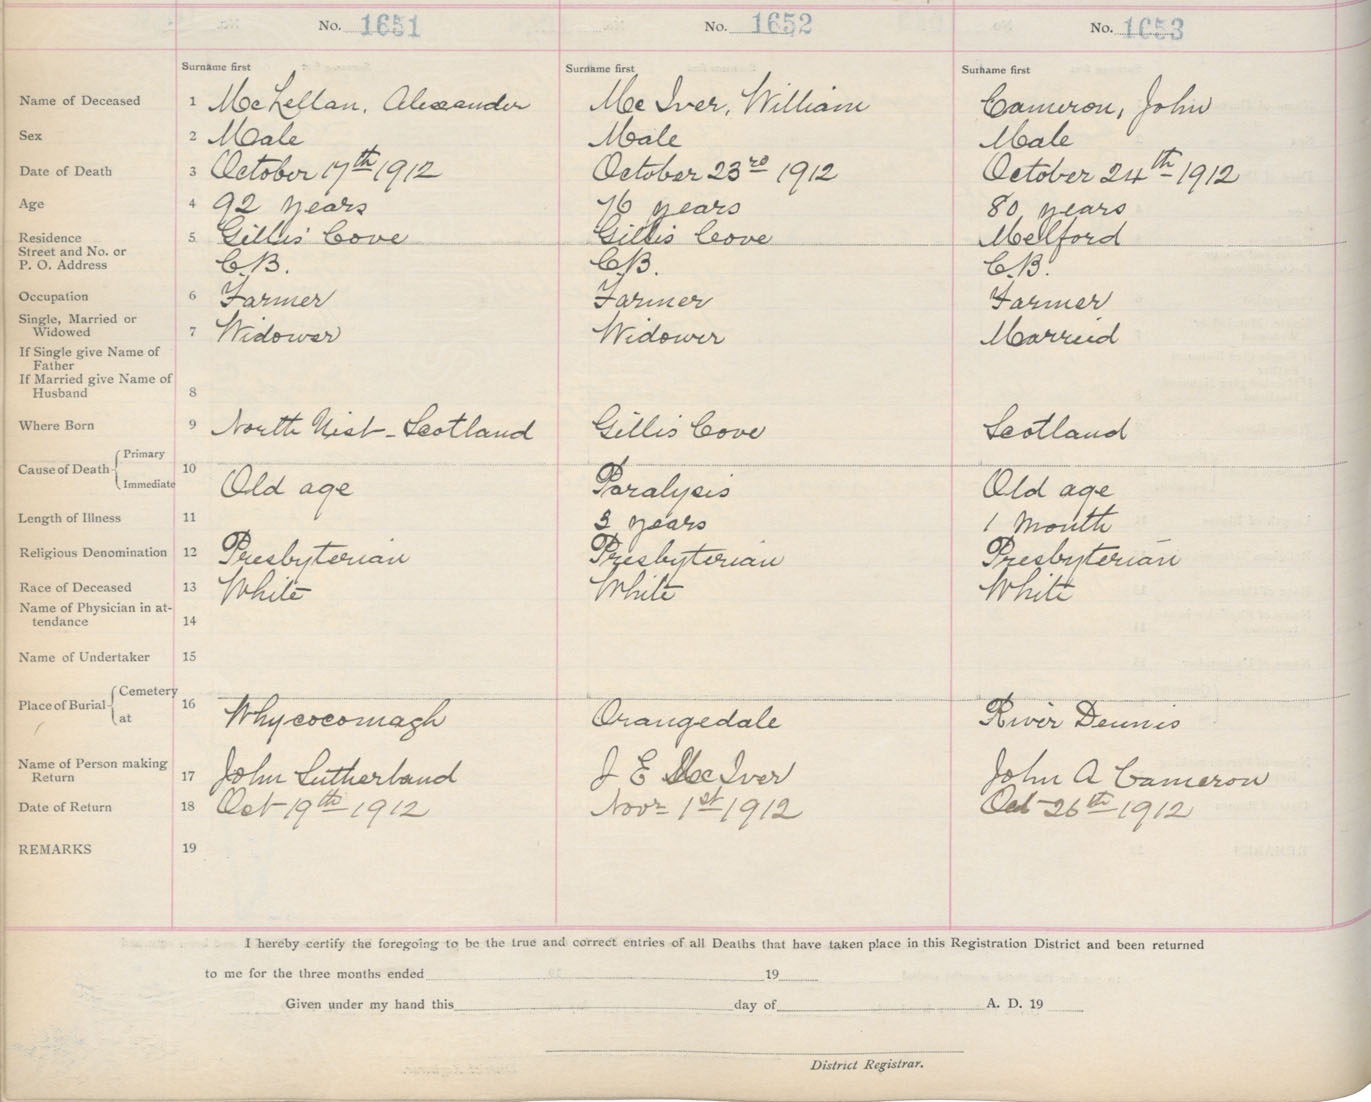 No. 1651 No. 1652 No. 1653
Surname first Surname first Surname first
Name of Deceased 1 McLellan, Alexander Mc Iver, William Cameron, John
Sex 2 Male Male Male
Date of Death 3 October 17th 1912 October 23rd 1912 October 24th 1912
Age 4 92 years 76 years 80 years
Residence 5 Gillis' Cove Gillis Cove Melford
Street and No. or
P. O. Address C.B. C.B. C.B.
Occupation 6 Farmer Farmer Farmer
Single, Married or
Widowed 7 Widower Widower Married
If Single give Name of
Father
If Married give Name of
Husband 8
Where Born 9 North Uist - Scotland Gillis Cove Scotland
Primary
Cause of Death 10
Immediate Old age Paralysis Old age
Length of Illness 11 3 years 1 month
Religious Denomination 12 Presbyterian Presbyterian Presbyterian
Race of Deceased 13 White White White
Name of Physician in at-
tendance 14
Name of Undertaker 15
Cemetery
Place of Burial 16
at Whycocomagh Orangedale River Dennis
Name of Person making
Return 17 John Sutherland J E McIver John A Cameron
Date of Return 18 Oct 19th 1912 Novr 1st 1912 Oct 26th 1912
REMARKS 19
I hereby certify the foregoing to be the true and correct entries of all Deaths that have taken place in this Registration District and been returned
to me for the three months ended 19
Given under my hand this day of A. D. 19
District Registrar.